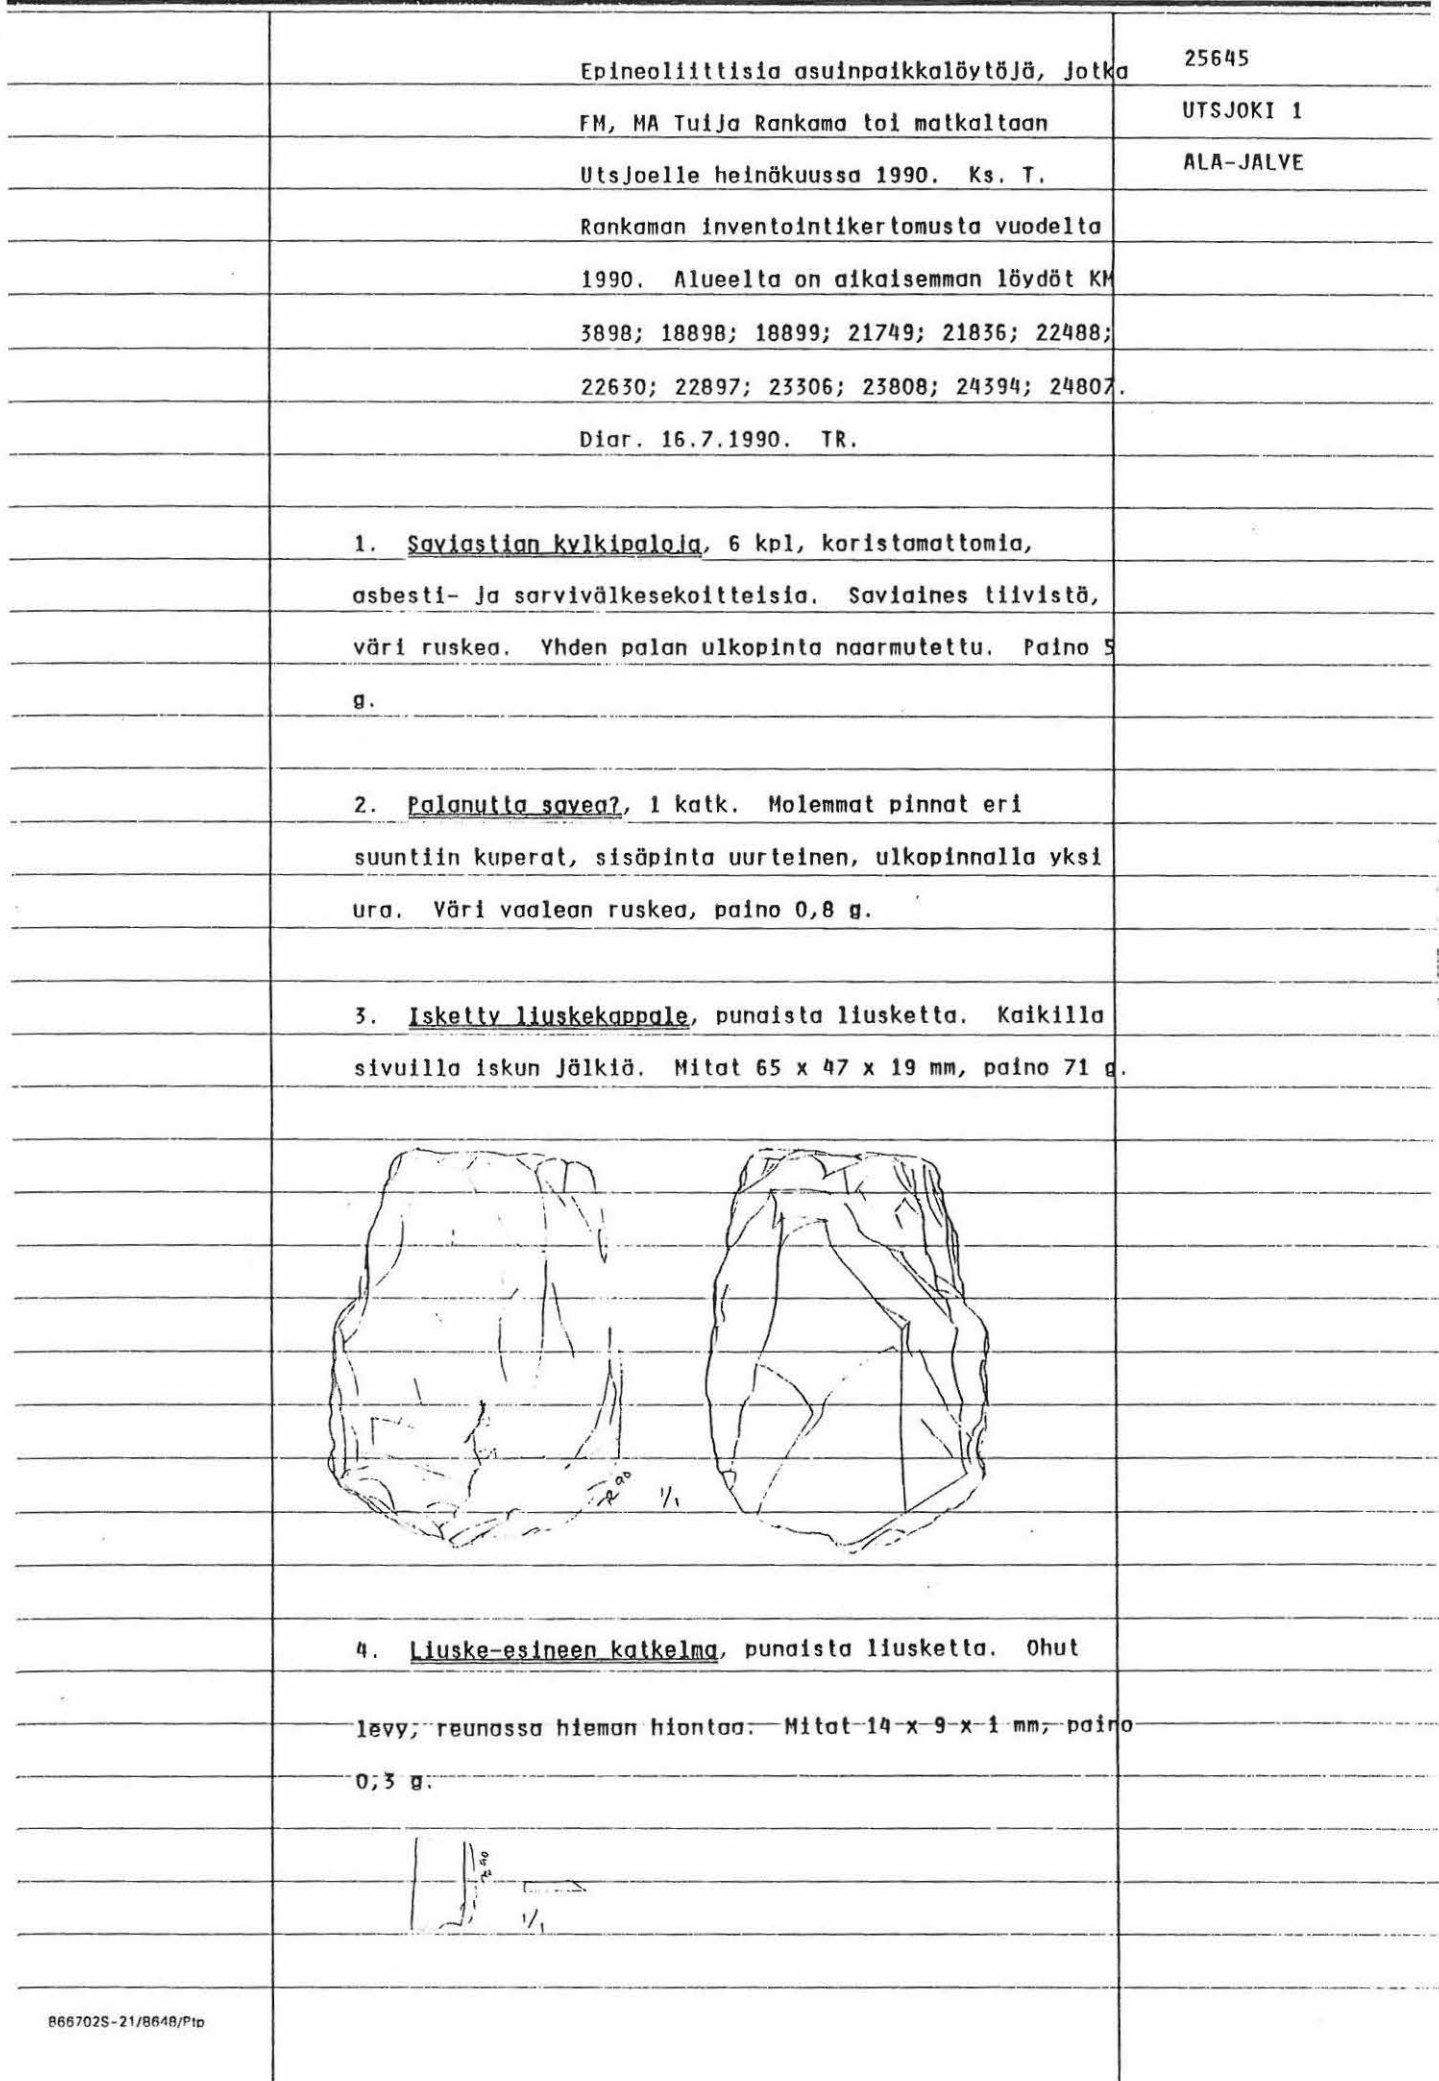 Epineoliittisia asuinpaikkalöytöjä, jotka
25645
FM, MA Tuija Rankama toi matkaltaan
UTSJOKI 1
Utsjoelle heinäkuussa 1990. Ks. T.
ALA-JALVE
Rankaman inventointikertomusta vuodelta
1990. Alueelta on aikaisemman löydöt KM
3898; 18898; 18899; 21749; 21836; 22488;
22630; 22897; 23306; 23808; 24394; 24807.
Diar. 16.7.1990. TR.
1. Saviastian kylkipaloja, 6 kpl, koristamattomia,
asbesti- ja sarvivälkesekoitteisia. Saviaines tiivistä,
väri ruskea. Yhden palan ulkopinta naarmutettu. Paino 5
g.
2. Palanutta savea?, 1 katk. Molemmat pinnat eri
suuntiin kuperat, sisäpinta uurteinen, ulkopinnalla yksi
ura. Väri vaalean ruskea, paino 0,8 g.
3. Isketty liuskekappale, punaista liusketta. Kaikilla
sivuilla iskun jälkiä. Mitat 65 x 47 x 19 mm, paino 71 g.
1/1
4. Liuske-esineen katkelma, punaista liusketta. Ohut
levy, reunassa hieman hiontaa. Mitat 14 x 9 x 1 mm, paino
0,3 g.
1/1
866702S-21/8648/Ptp